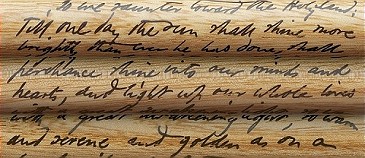 , so we saunter toward the Holy Land,
Till one day the sun shall shine more
brightly than ever he has done, shall
perchance shine into our minds and
hearts, and light up our whole lives
with a great awakening light, so warm
and serene and golden as on a